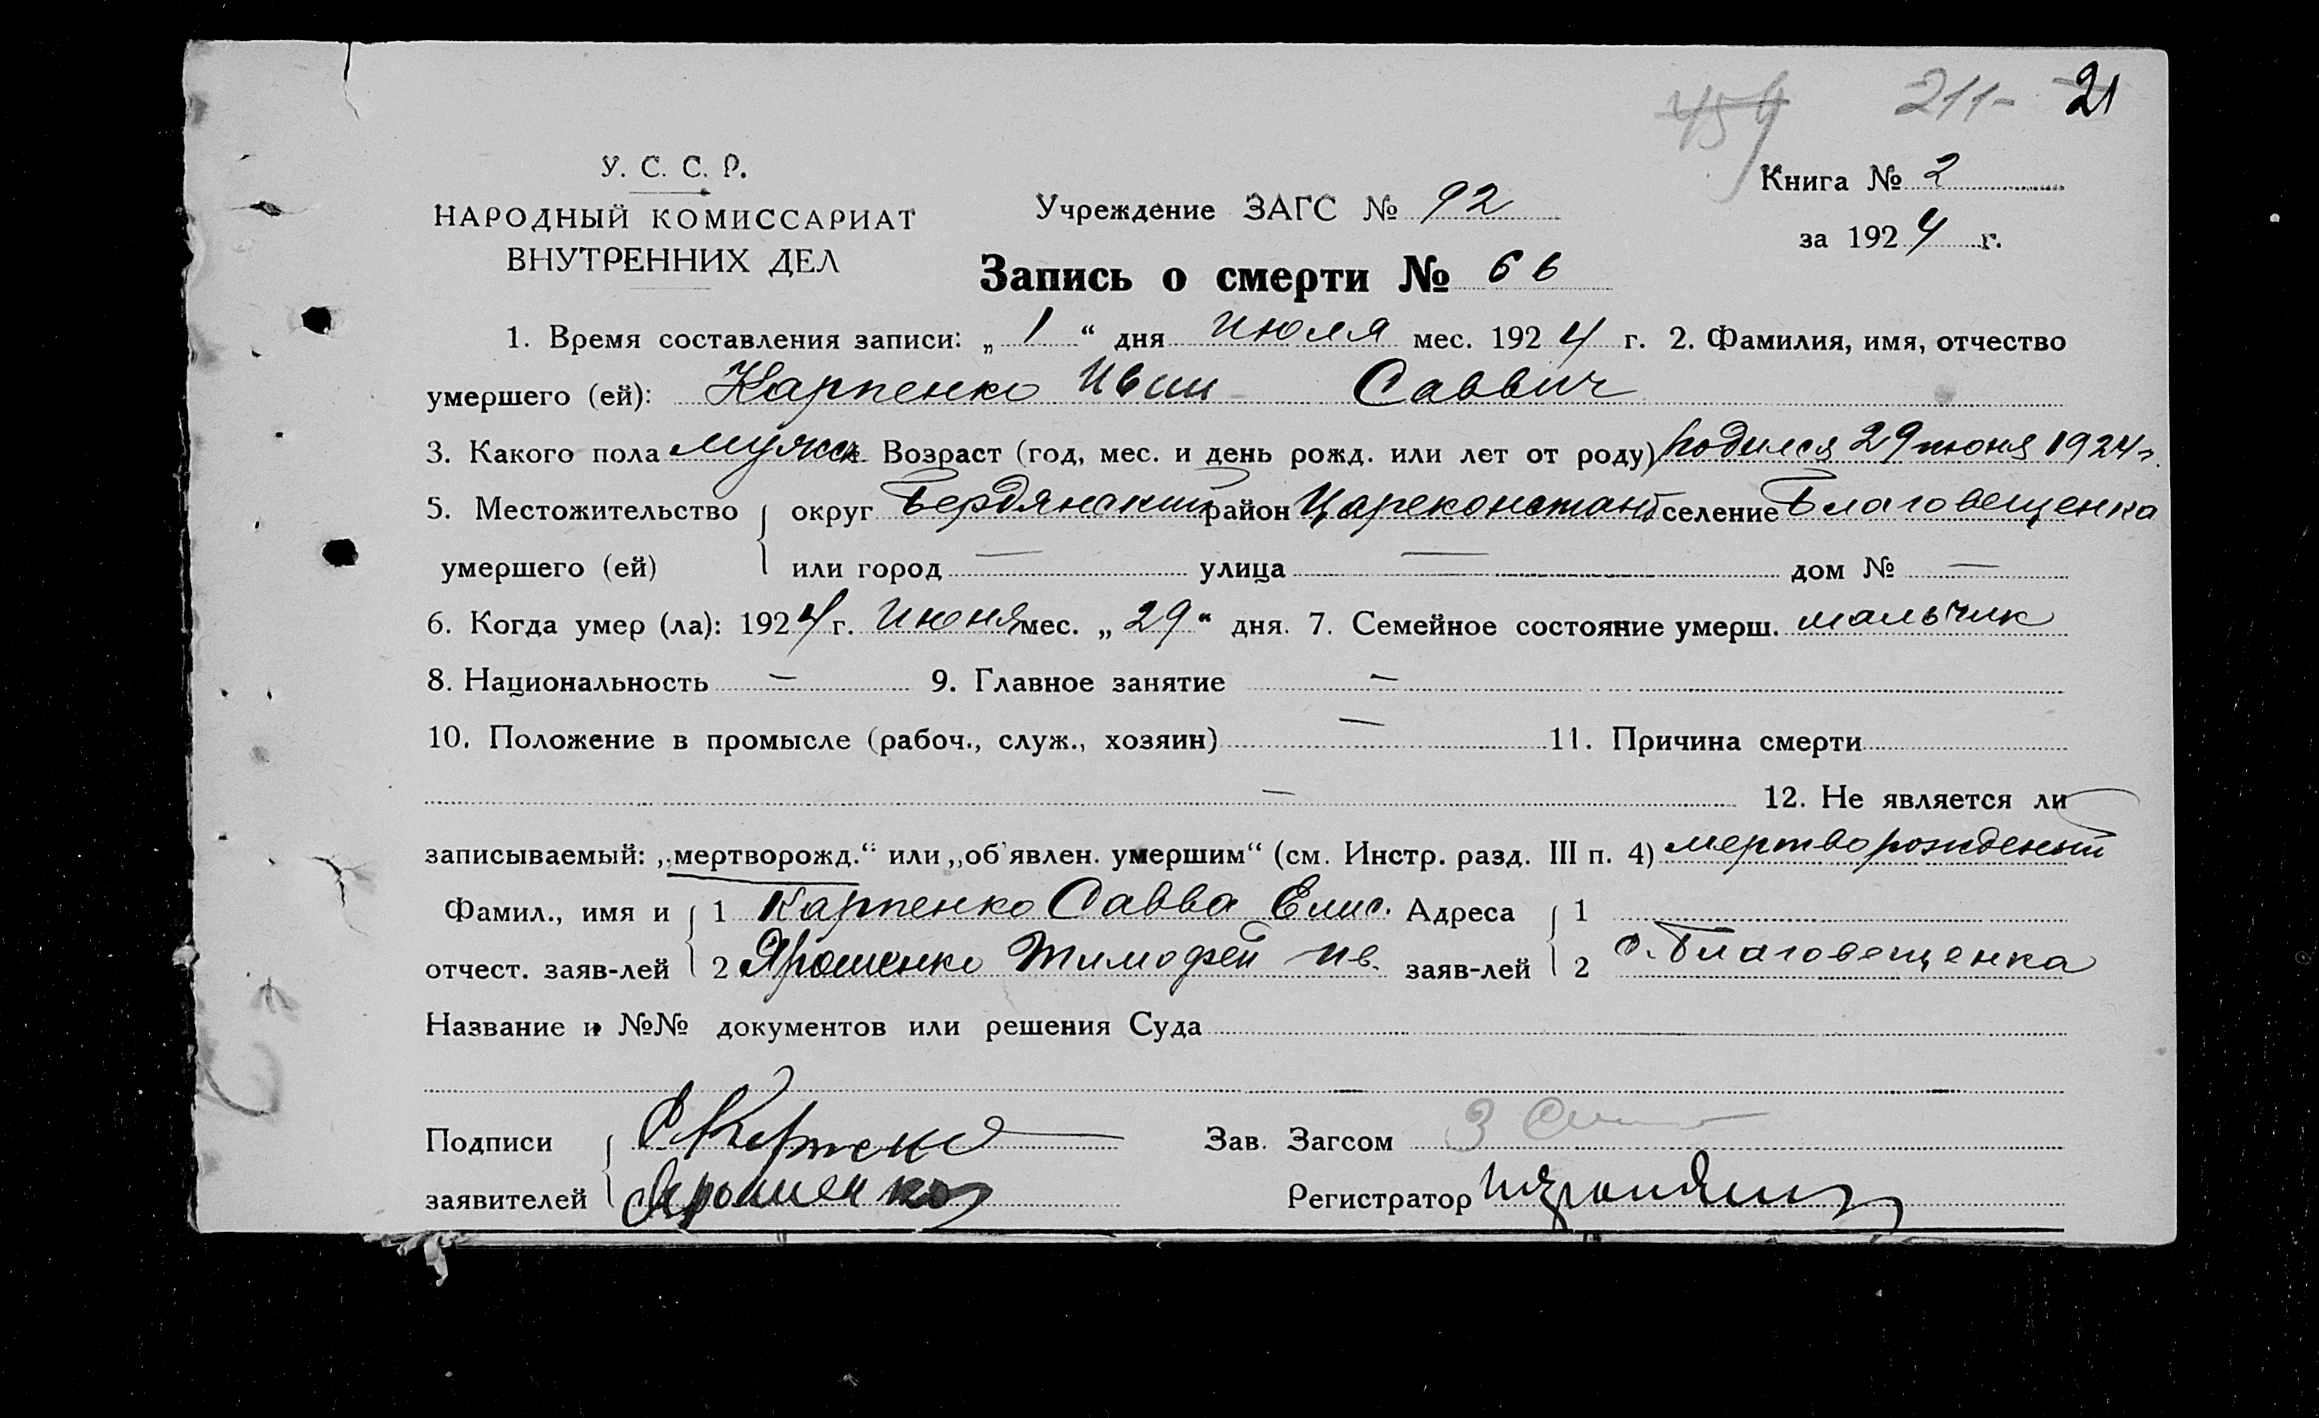 459 211- 21
У. С. С. Р.
НАРОДНЫЙ КОМИССАРИАТ
ВНУТРЕННИХ ДЕЛ
Учреждение ЗАГС № 92
Книга № 2
за 1924 г.
Запись о смерти № 66
1. Время составления записи: „ 1 “ дня июля мес. 1924 г. 2. Фамилия, имя, отчество
умершего (ей): Карпенко Иван Саввич
3. Какого пола мужск Возраст (год, мес. и день рожд. или лет от роду) родился 29 июня 1924 г.
5. Местожительство { округ Бердянский район Цареконстант селение Благовещенка
умершего (ей) или город — улица — дом № —
6. Когда умер (ла): 1924 г. июня мес. „ 29 “ дня. 7. Семейное состояние умерш. мальчик
8. Национальность — 9. Главное занятие —
10. Положение в промысле (рабоч., служ., хозяин) — 11. Причина смерти
— 12. Не является ли
записываемый: „мертворожд.“ или „об'явлен. умершим“ (см. Инстр. разд. III п. 4) мертворожденый
Фамил., имя и { 1 Карпенко Савва Елис. Адреса { 1
отчест. заяв-лей 2 Ярошенко Тимофей Ив. заяв-лей 2 с. Благовещенка
Название и №№ документов или решения Суда
Подписи { С Карпенко Зав. Загсом
заявителей Ярошенко Регистратор